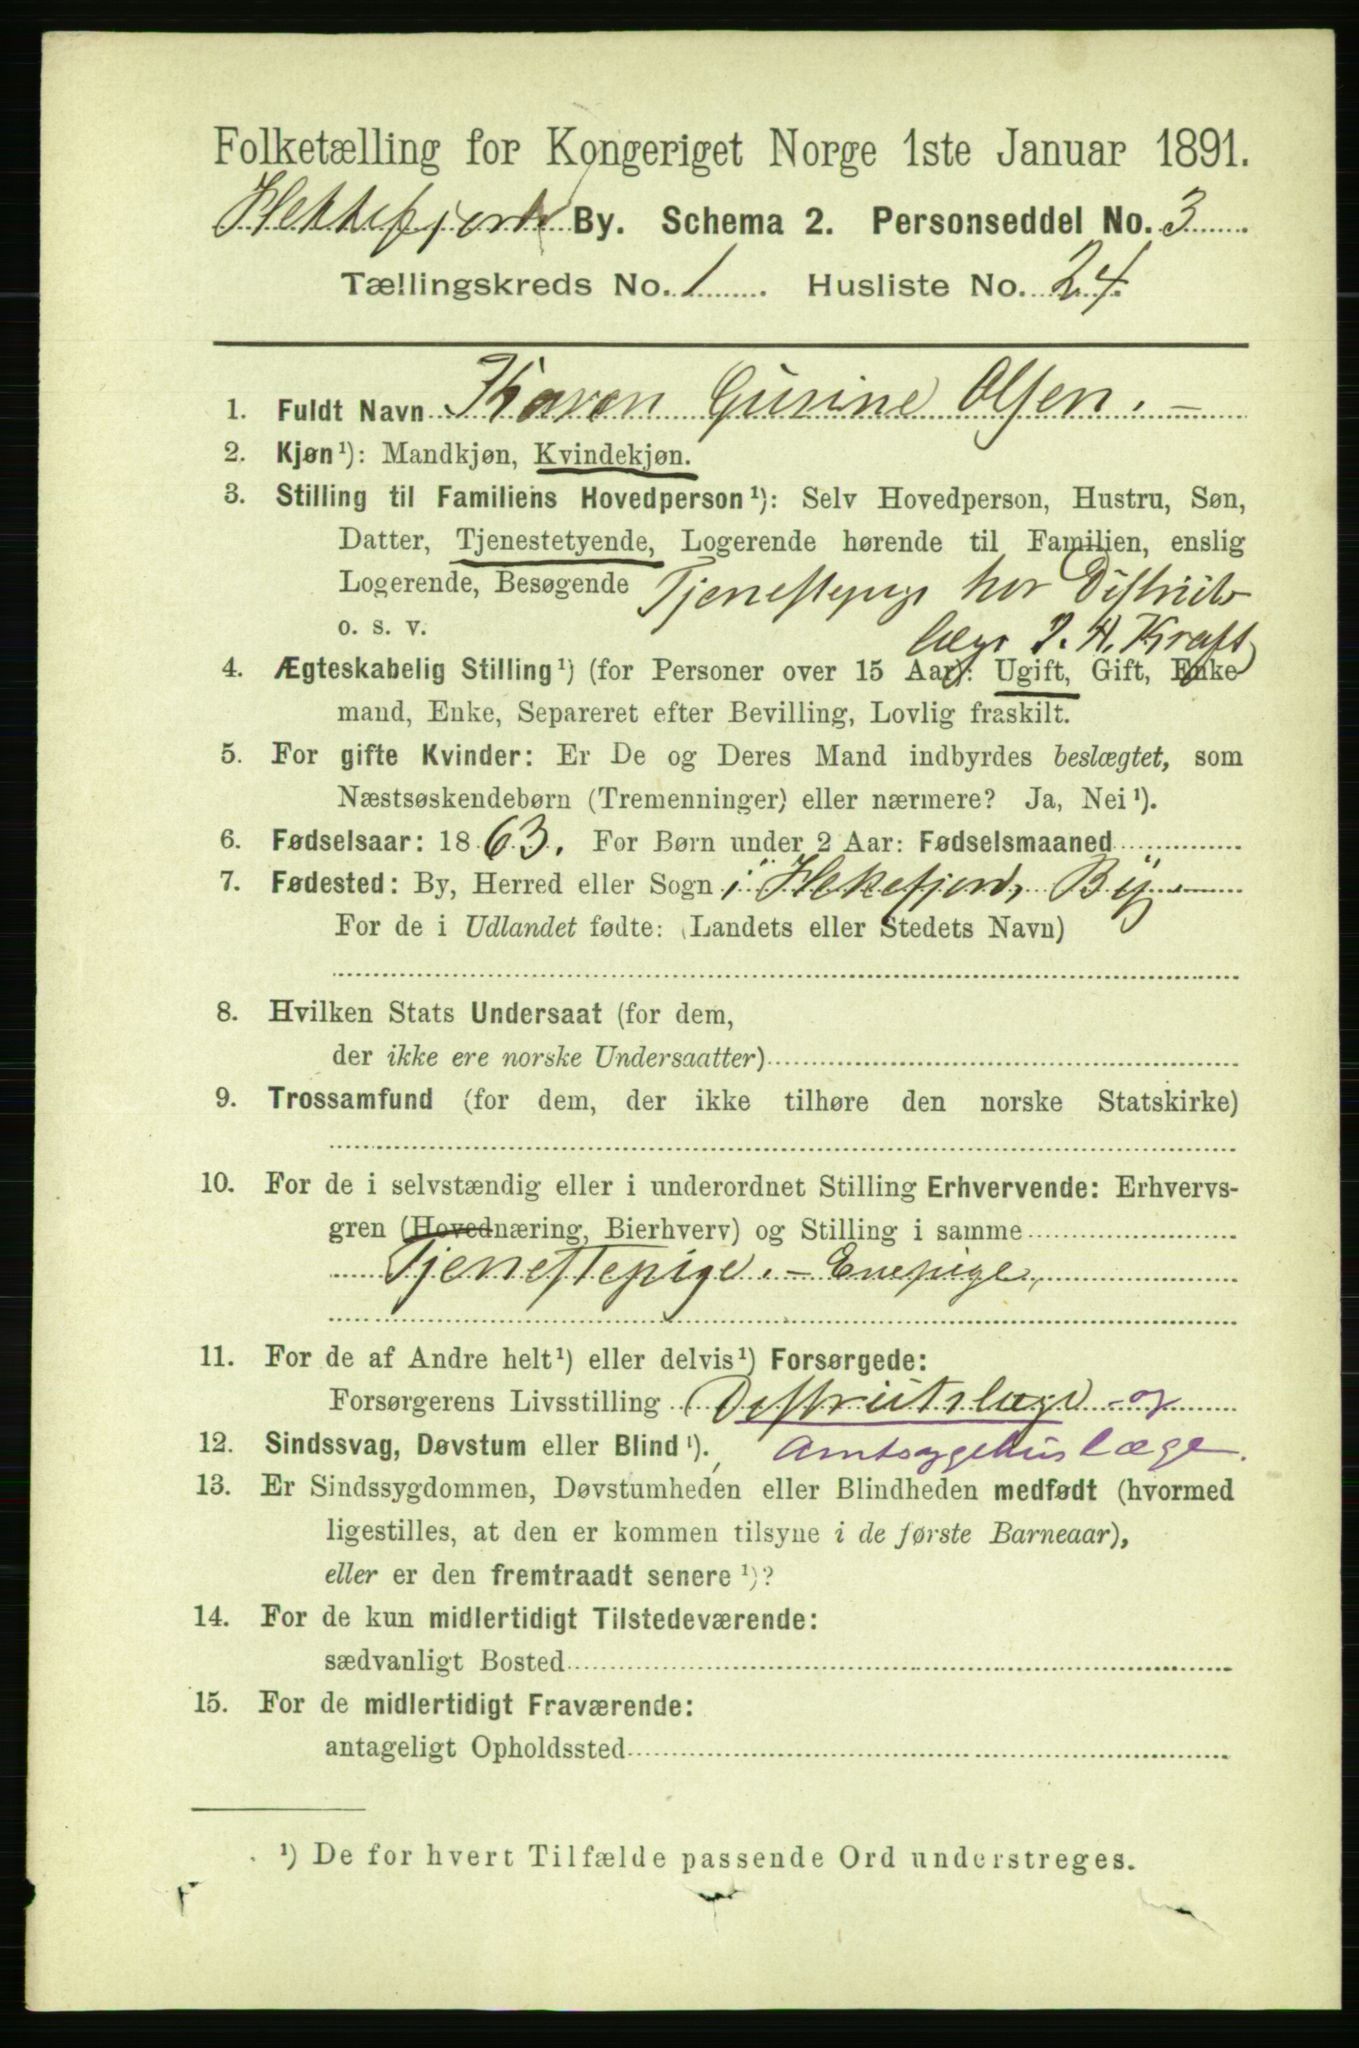 Folketælling for Kongeriget Norge 1ste Januar 1891.
Flekkefjord By. Schema 2. Personseddel No. 3
Tællingskreds No. 1 Husliste No. 24.
1. Fuldt Navn Karen Gurine Olsen. –
2. Kjøn¹): Mandkjøn, Kvindekjøn.
3. Stilling til Familiens Hovedperson¹): Selv Hovedperson, Hustru, Søn,
Datter, Tjenestetyende, Logerende hørende til Familien, enslig
Logerende, Besøgende Tjenestepige hos Distrikts
o. s. v. læge J. A. Kraft
4. Ægteskabelig Stilling¹) (for Personer over 15 Aar): Ugift, Gift, Enke
mand, Enke, Separeret efter Bevilling, Lovlig fraskilt.
5. For gifte Kvinder: Er De og Deres Mand indbyrdes beslægtet, som
Næstsøskendebørn (Tremenninger) eller nærmere? Ja, Nei¹).
6. Fødselsaar: 1863. For Børn under 2 Aar: Fødselsmaaned
7. Fødested: By, Herred eller Sogn i Flekefjord, By
For de i Udlandet fødte: (Landets eller Stedets Navn)
8. Hvilken Stats Undersaat (for dem,
der ikke ere norske Undersaatter)
9. Trossamfund (for dem, der ikke tilhøre den norske Statskirke)
10. For de i selvstændig eller i underordnet Stilling Erhvervende: Erhvervs-
gren (Hovednæring, Bierhverv) og Stilling i samme
Tjenestepige. – Enepige,
11. For de af Andre helt¹) eller delvis¹) Forsørgede:
Forsørgerens Livsstilling Distriktslæge - og
12. Sindssvag, Døvstum eller Blind¹). Amtsygehuslæge.
13. Er Sindssygdommen, Døvstumheden eller Blindheden medfødt (hvormed
ligestilles, at den er kommen tilsyne i de første Barneaar),
eller er den fremtraadt senere¹)?
14. For de kun midlertidigt Tilstedeværende:
sædvanligt Bosted
15. For de midlertidigt Fraværende:
antageligt Opholdssted
¹) De for hvert Tilfælde passende Ord understreges.